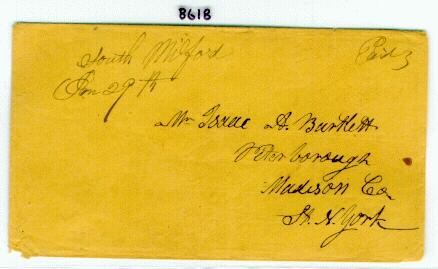 8618
South Milford Paid 3
Jan 29th
Mr Isaac A. Bartlett
Peterborough
Madison Co
St. N. York